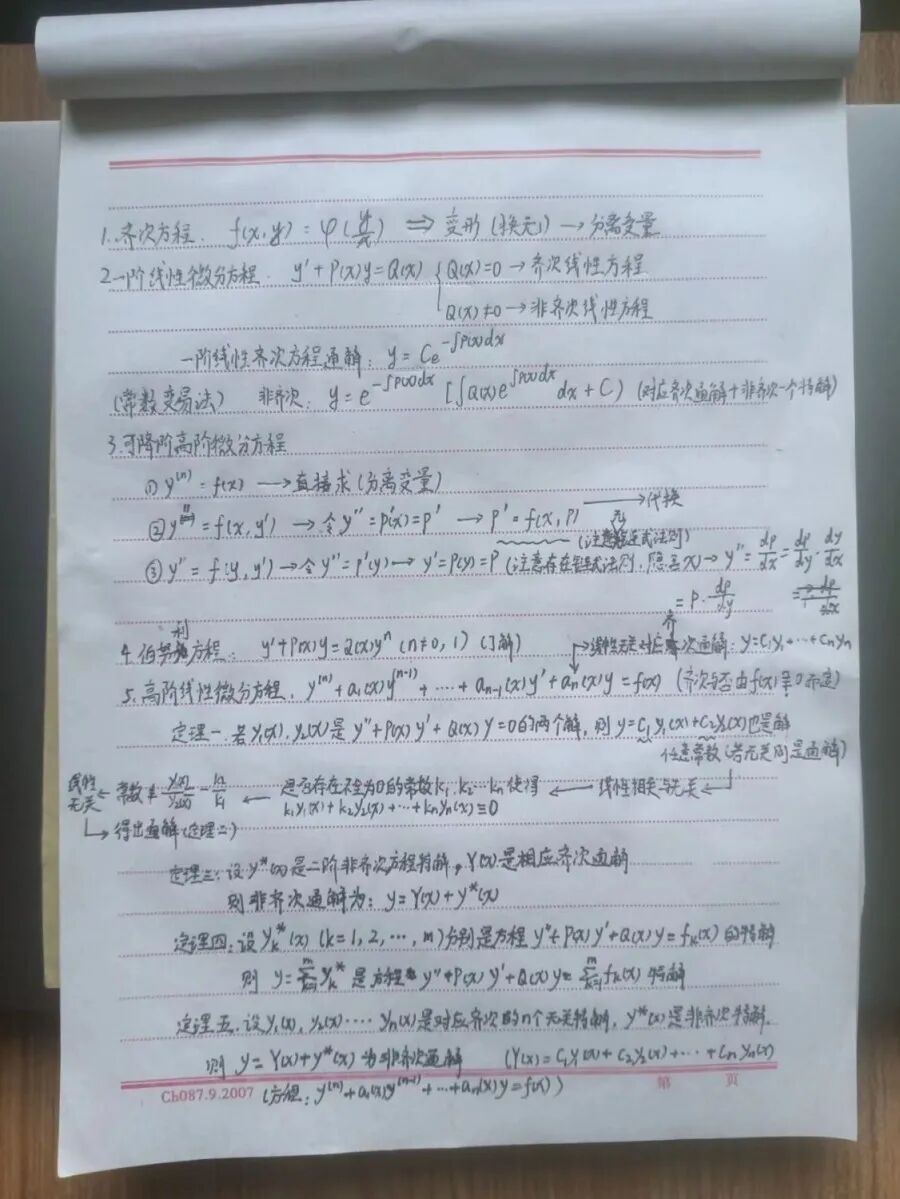 1. 齐次方程. f(x,y) = φ(y/x) ⇒ 变形 (换元) → 分离变量
2. 一阶线性微分方程. y' + P(x)y = Q(x) { Q(x)=0 → 齐次线性方程
Q(x)≠0 → 非齐次线性方程
一阶线性齐次方程通解: y = Ce^{-∫P(x)dx}
(常数变易法) 非齐次: y = e^{-∫P(x)dx} [∫Q(x)e^{∫P(x)dx} dx + C] (对应齐次通解+非齐次一个特解)
3. 可降阶高阶微分方程
① y^{(n)} = f(x) → 直接求 (分离变量)
② y'' = f(x, y') → 令 y'' = p'(x) = p' → p' = f(x, p) → 代换
(注意链式法则)
③ y'' = f(y, y') → 令 y'' = p'(y) → y' = p(y) = p (注意存在链式法则, 隐含x) → y'' = dp/dx = dp/dy · dy/dx
= p · dp/dy
4. 伯努利方程: y' + P(x)y = Q(x)y^n (n≠0, 1) (了解) 线性无关对应齐次通解: y=C₁y₁+…+Cnyn
5. 高阶线性微分方程. y^{(n)} + a₁(x)y^{(n-1)} + … + a_{n-1}(x)y' + a_n(x)y = f(x) (齐次与否由f(x)≡0而定)
定理一. 若y₁(x), y₂(x)是 y''+P(x)y'+Q(x)y=0的两个解, 则 y=C₁y₁(x)+C₂y₂(x)也是解
任意常数 (若无关则是通解)
线性无关 ← 常数 ≠ y₁(x)/y₂(x) = k₂/k₁ ← 是否存在不全为0的常数k₁、k₂…kn使得 ← 线性相关与无关
k₁y₁(x)+k₂y₂(x)+…+knyn(x)≡0
→ 得出通解 (定理二)
定理三: 设y*(x)是二阶非齐次方程特解, Y(x)是相应齐次通解
则非齐次通解为: y=Y(x)+y*(x)
定理四: 设 y_k*(x) (k=1, 2, …, m)分别是方程 y''+P(x)y'+Q(x)y=f_k(x)的特解
则 y=∑_{k=1}^{m} y_k* 是方程 y''+P(x)y'+Q(x)y=∑_{k=1}^{m} f_k(x) 特解
定理五. 设y₁(x), y₂(x)…. yn(x)是对应齐次的n个无关特解, y*(x)是非齐次特解.
则 y=Y(x)+y*(x) 为非齐次通解 (Y(x)=C₁y₁(x)+C₂y₂(x)+…+Cnyn(x)
Cb087.9.2007 第 页
(方程: y^{(n)}+a₁(x)y^{(n-1)}+…+an(x)y=f(x))